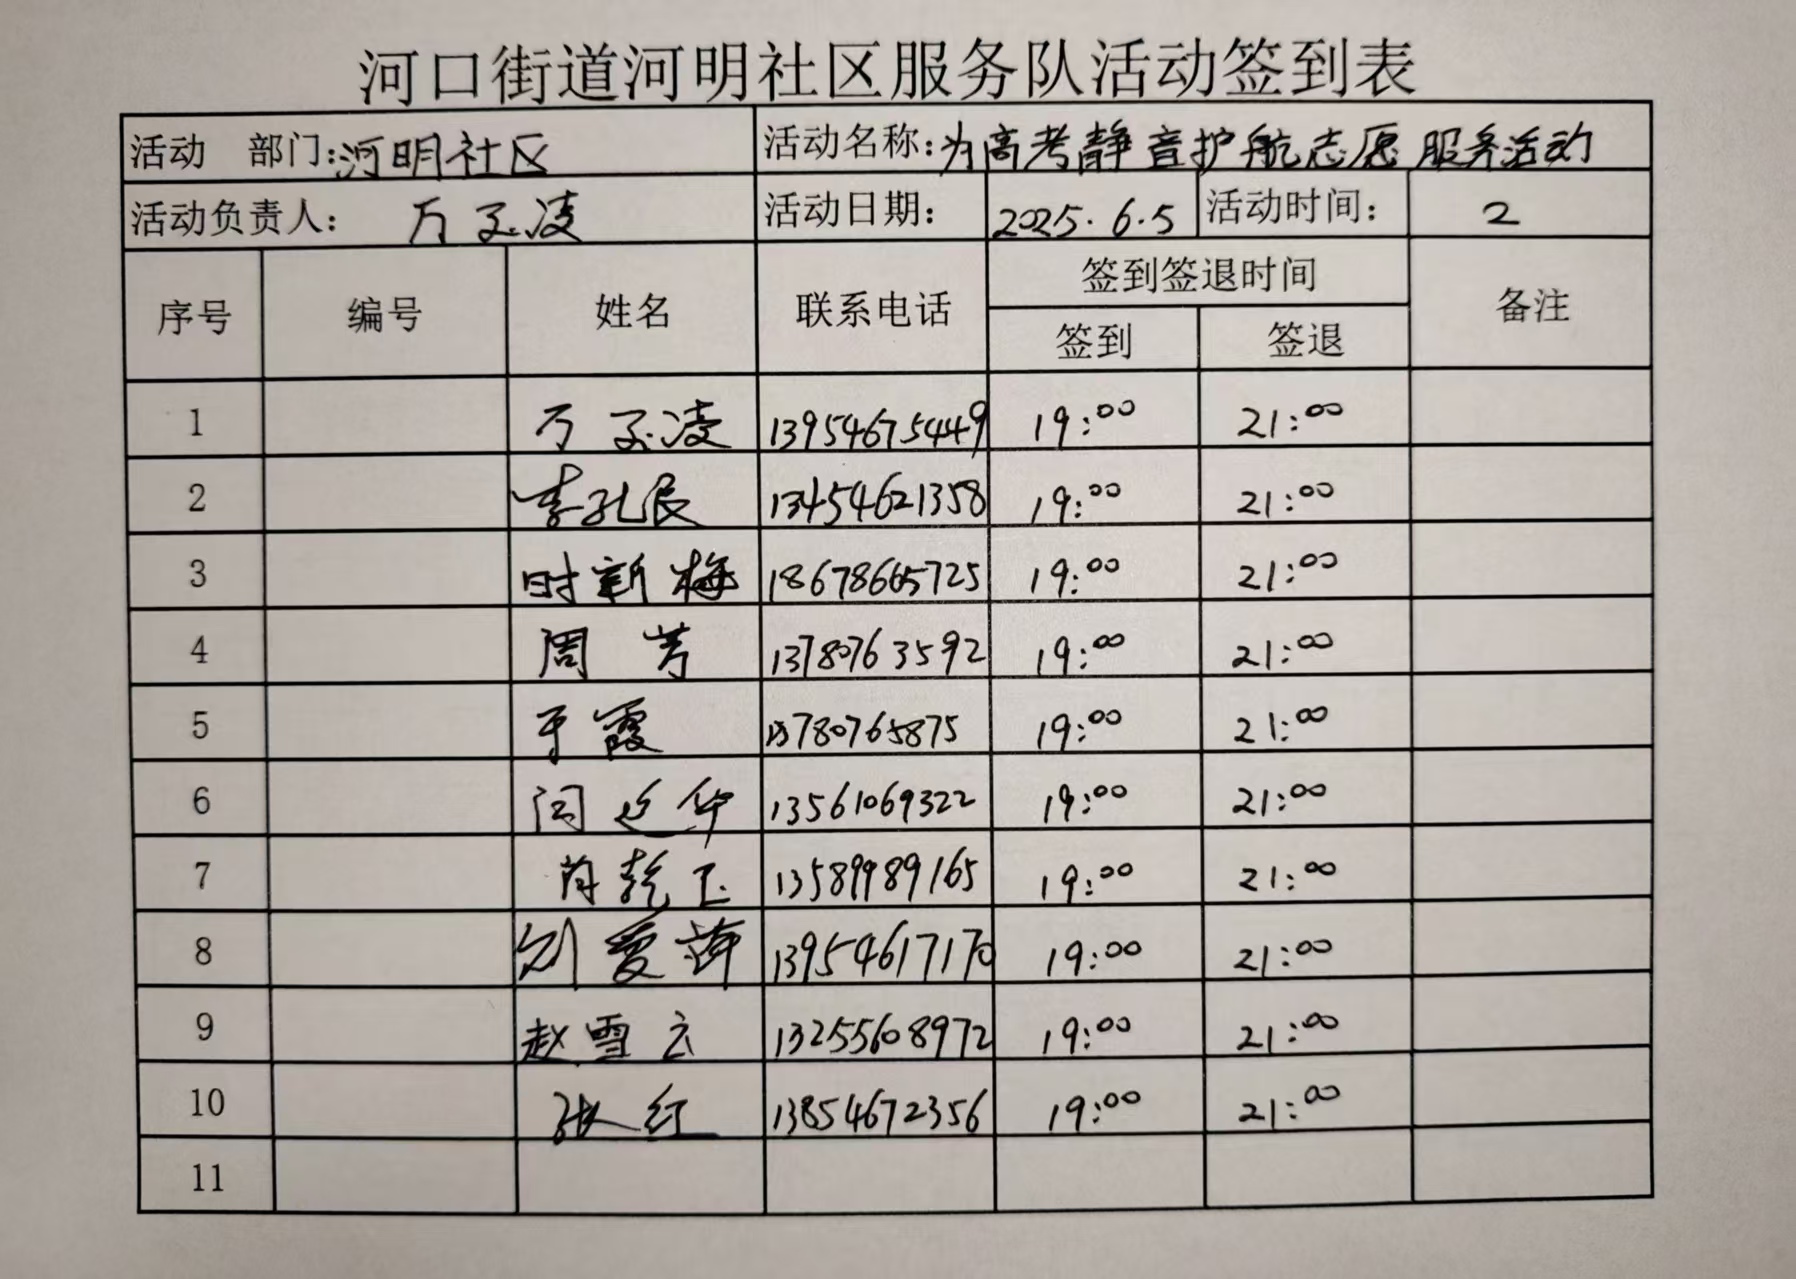 河口街道河明社区服务队活动签到表
活动 部门:河明社区 活动名称:为高考静音护航志愿服务活动
活动负责人: 万子凌 活动日期: 2025.6.5 活动时间: 2
序号 编号 姓名 联系电话 签到签退时间 备注
签到 签退
1 万子凌 13954675449 19:00 21:00
2 李孔民 13454621358 19:00 21:00
3 时新梅 18678665725 19:00 21:00
4 周芳 13780763592 19:00 21:00
5 于霞 13780765875 19:00 21:00
6 闫延华 13561069322 19:00 21:00
7 肖乾玉 13589989165 19:00 21:00
8 刘爱萍 13954617170 19:00 21:00
9 赵雪云 13255608972 19:00 21:00
10 张红 13854672356 19:00 21:00
11